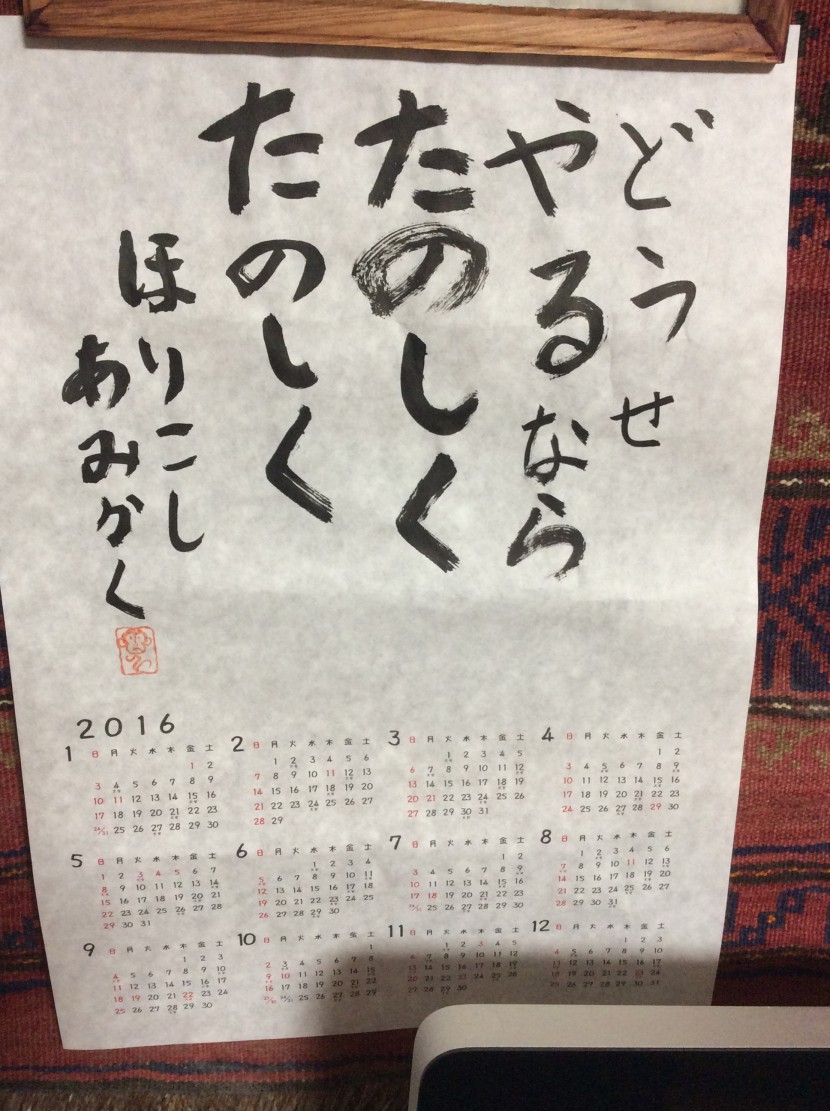 どうせ
やるなら
たのしく
たのしく
ほりこし
あみかく
2016
1
日 月 火 水 木 金 土
1 2
3 4 5 6 7 8 9
10 11 12 13 14 15 16
17 18 19 20 21 22 23
24/31 25 26 27 28 29 30
2
日 月 火 水 木 金 土
1 2 3 4 5 6
7 8 9 10 11 12 13
14 15 16 17 18 19 20
21 22 23 24 25 26 27
28 29
3
日 月 火 水 木 金 土
1 2 3 4 5
6 7 8 9 10 11 12
13 14 15 16 17 18 19
20 21 22 23 24 25 26
27 28 29 30 31
4
日 月 火 水 木 金 土
1 2
3 4 5 6 7 8 9
10 11 12 13 14 15 16
17 18 19 20 21 22 23
24 25 26 27 28 29 30
5
日 月 火 水 木 金 土
1 2 3 4 5 6 7
8 9 10 11 12 13 14
15 16 17 18 19 20 21
22 23 24 25 26 27 28
29 30 31
6
日 月 火 水 木 金 土
1 2 3 4
5 6 7 8 9 10 11
12 13 14 15 16 17 18
19 20 21 22 23 24 25
26 27 28 29 30
7
日 月 火 水 木 金 土
1 2
3 4 5 6 7 8 9
10 11 12 13 14 15 16
17 18 19 20 21 22 23
24/31 25 26 27 28 29 30
8
日 月 火 水 木 金 土
1 2 3 4 5 6
7 8 9 10 11 12 13
14 15 16 17 18 19 20
21 22 23 24 25 26 27
28 29 30 31
9
日 月 火 水 木 金 土
1 2 3
4 5 6 7 8 9 10
11 12 13 14 15 16 17
18 19 20 21 22 23 24
25 26 27 28 29 30
10
日 月 火 水 木 金 土
1
2 3 4 5 6 7 8
9 10 11 12 13 14 15
16 17 18 19 20 21 22
23/30 24/31 25 26 27 28 29
11
日 月 火 水 木 金 土
1 2 3 4 5
6 7 8 9 10 11 12
13 14 15 16 17 18 19
20 21 22 23 24 25 26
27 28 29 30
12
日 月 火 水 木 金 土
1 2 3
4 5 6 7 8 9 10
11 12 13 14 15 16 17
18 19 20 21 22 23 24
25 26 27 28 29 30 31